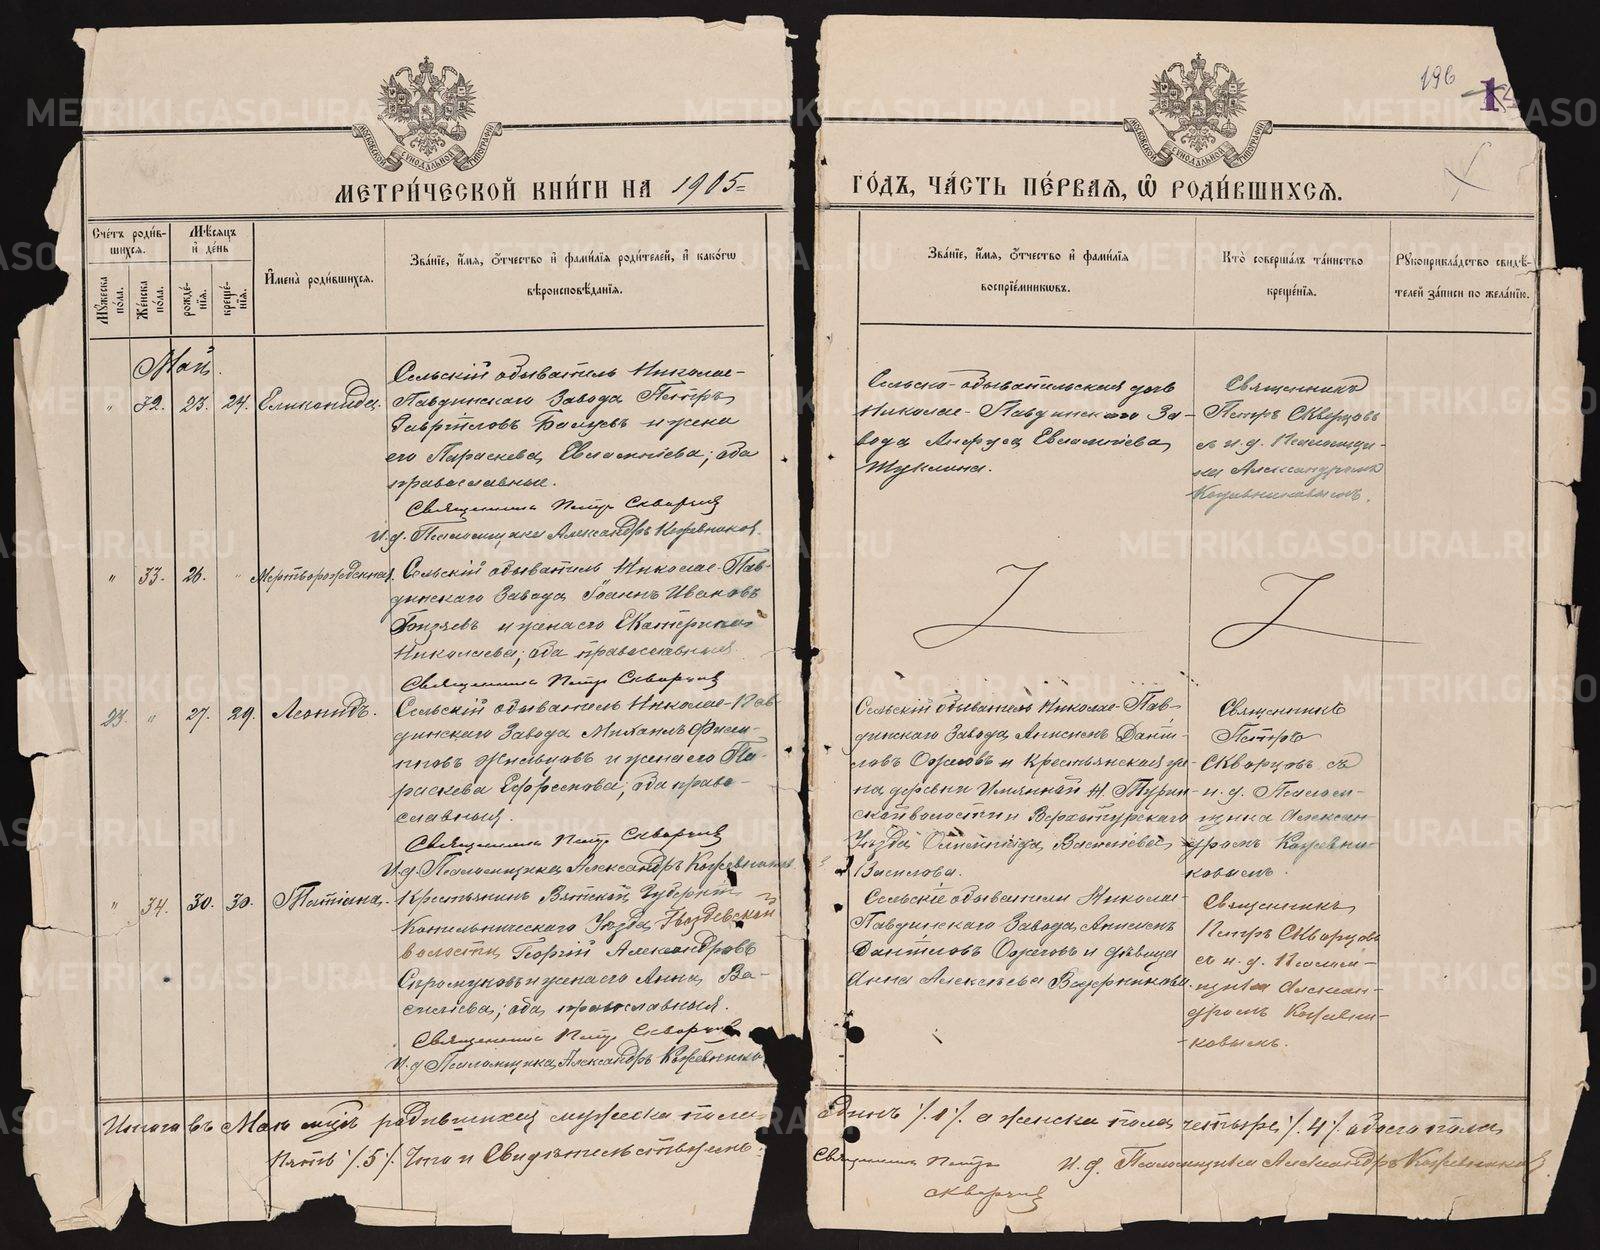 196
МЕТРИ́ЧЕСКОЙ КНИ́ГИ НА 1905=
ГО́ДЪ, ЧА́СТЬ ПЕ́РВАЯ, Ѽ РОДИ́ВШИХСЯ.
МОСКОВСКОЙ СѴНОДАЛЬНОЙ ТИПОГРАФІИ
МОСКОВСКОЙ СѴНОДАЛЬНОЙ ТИПОГРАФІИ
Сче́тъ роди́вшихся.
Му́жеска по́ла.
Же́нска по́ла.
Мѣ́сяцъ и҆ де́нь
рожде́нїя.
креще́нїя.
И҆мена̀ роди́вшихся.
Зва́нїе, и҆́мя, ѻ҆́тчество и҆ фами́лїя роди́телей, и҆ како́гѡ
вѣроисповѣ́данїя.
Зва́нїе, и҆́мя, ѻ҆́тчество и҆ фами́лїя
воспрїе́мниковъ.
Кто̀ соверша́лъ та́инство
креще́нїя.
Рукоприкла́дство свидѣ́-
телей за́писи по жела́нїю.
Май.
" 32. 23. 24. Еликонида.
Сельскій обыватель Николае-
Павдинскаго Завода Петръ
Гавріиловъ Балуевъ и жена
его Параскева Евлампіева; оба
православные.
Священникъ Петръ Скворцовъ
И.д. Псаломщика Александръ Кожевниковъ.
Сельско-обывательская дочь
Николае-Павдинскаго За-
вода Анфуса Евлампіева
Шуклина.
Священникъ
Петръ Скворцовъ
съ и.д. Псаломщи-
ка Александромъ
Кожевниковымъ.
" 33. 26. " Мертворожденная.
Сельскій обыватель Николае-Пав-
динскаго Завода Іоаннъ Ивановъ
и жена его Екатерина
Николаева; оба православныя
Священникъ Петръ Скворцовъ
23. " 27. 29. Леонидъ.
Сельскій обыватель Николае-Пав-
динскаго Завода Михаилъ Филип-
повъ Жильцовъ и жена его Па-
раскева Ефремова; оба право-
славныя.
Священникъ Петръ Скворцовъ
И.д. Псаломщика Александръ Кожевниковъ
Сельскій обыватель Николае-Пав-
динскаго Завода Анисимъ Даніи-
ловъ Ожеговъ и крестьянская же-
на деревни Именной Н. Турин-
ской волости Верхотурскаго
Уѣзда Олимпіада Васильева
Васнлова.
Священникъ
Петръ
Скворцовъ съ
и.д. Псалом-
щика Алексан-
дромъ Кожевни-
ковымъ.
" 34. 30. 30. Татіана.
Крестьянинъ Вятской Губерніи
Котельническаго Уѣзда Гвоздевской
волости Георгій Александровъ
и жена его Анна Ва-
сильева; оба православныя.
Священникъ Петръ Скворцовъ
И.д Псаломщика Александръ Кожевниковъ
Сельскіе обыватели Николае-
Павдинскаго Завода Анисимъ
Даніиловъ Ожеговъ и дѣвица
Анна Алексѣева
Священникъ
Петръ Скворцовъ
съ и.д. Псалом-
щика Алексан-
дромъ Кожевни-
ковымъ.
Итого въ Маѣ мцѣ родившихся мужеска пола
одинъ /.1./. а женска пола четыре /.4./. обоего пола
Пять /.5./. Что и Свидѣтельствуемъ:
Священникъ Петръ Скворцовъ
И.д. Псаломщика Александръ Кожевниковъ
METRIKI.GASO-URAL.RU